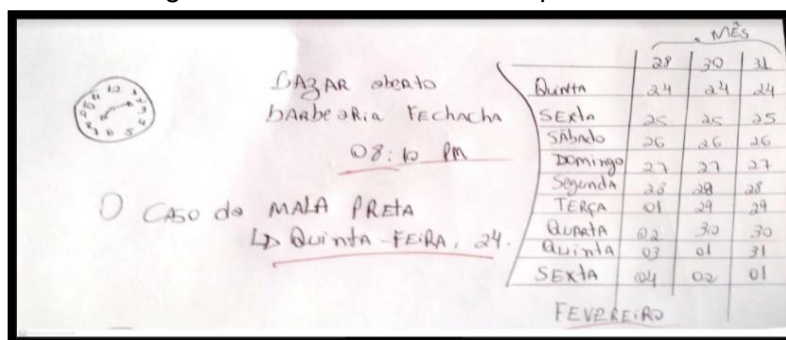 BAZAR aberto
bARbeaRia FEchacha
08:10 PM
O CASO da MALA PRETA
↳ Quinta-FEiRA, 24.
MÊS
28 30 31
Quinta 24 24 24
SExta 25 25 25
SÁbado 26 26 26
Domingo 27 27 27
Segunda 28 28 28
TERÇA 01 29 29
QuARtA 02 30 30
Quinta 03 01 31
SEXtA 04 02 01
FEVEREiRO